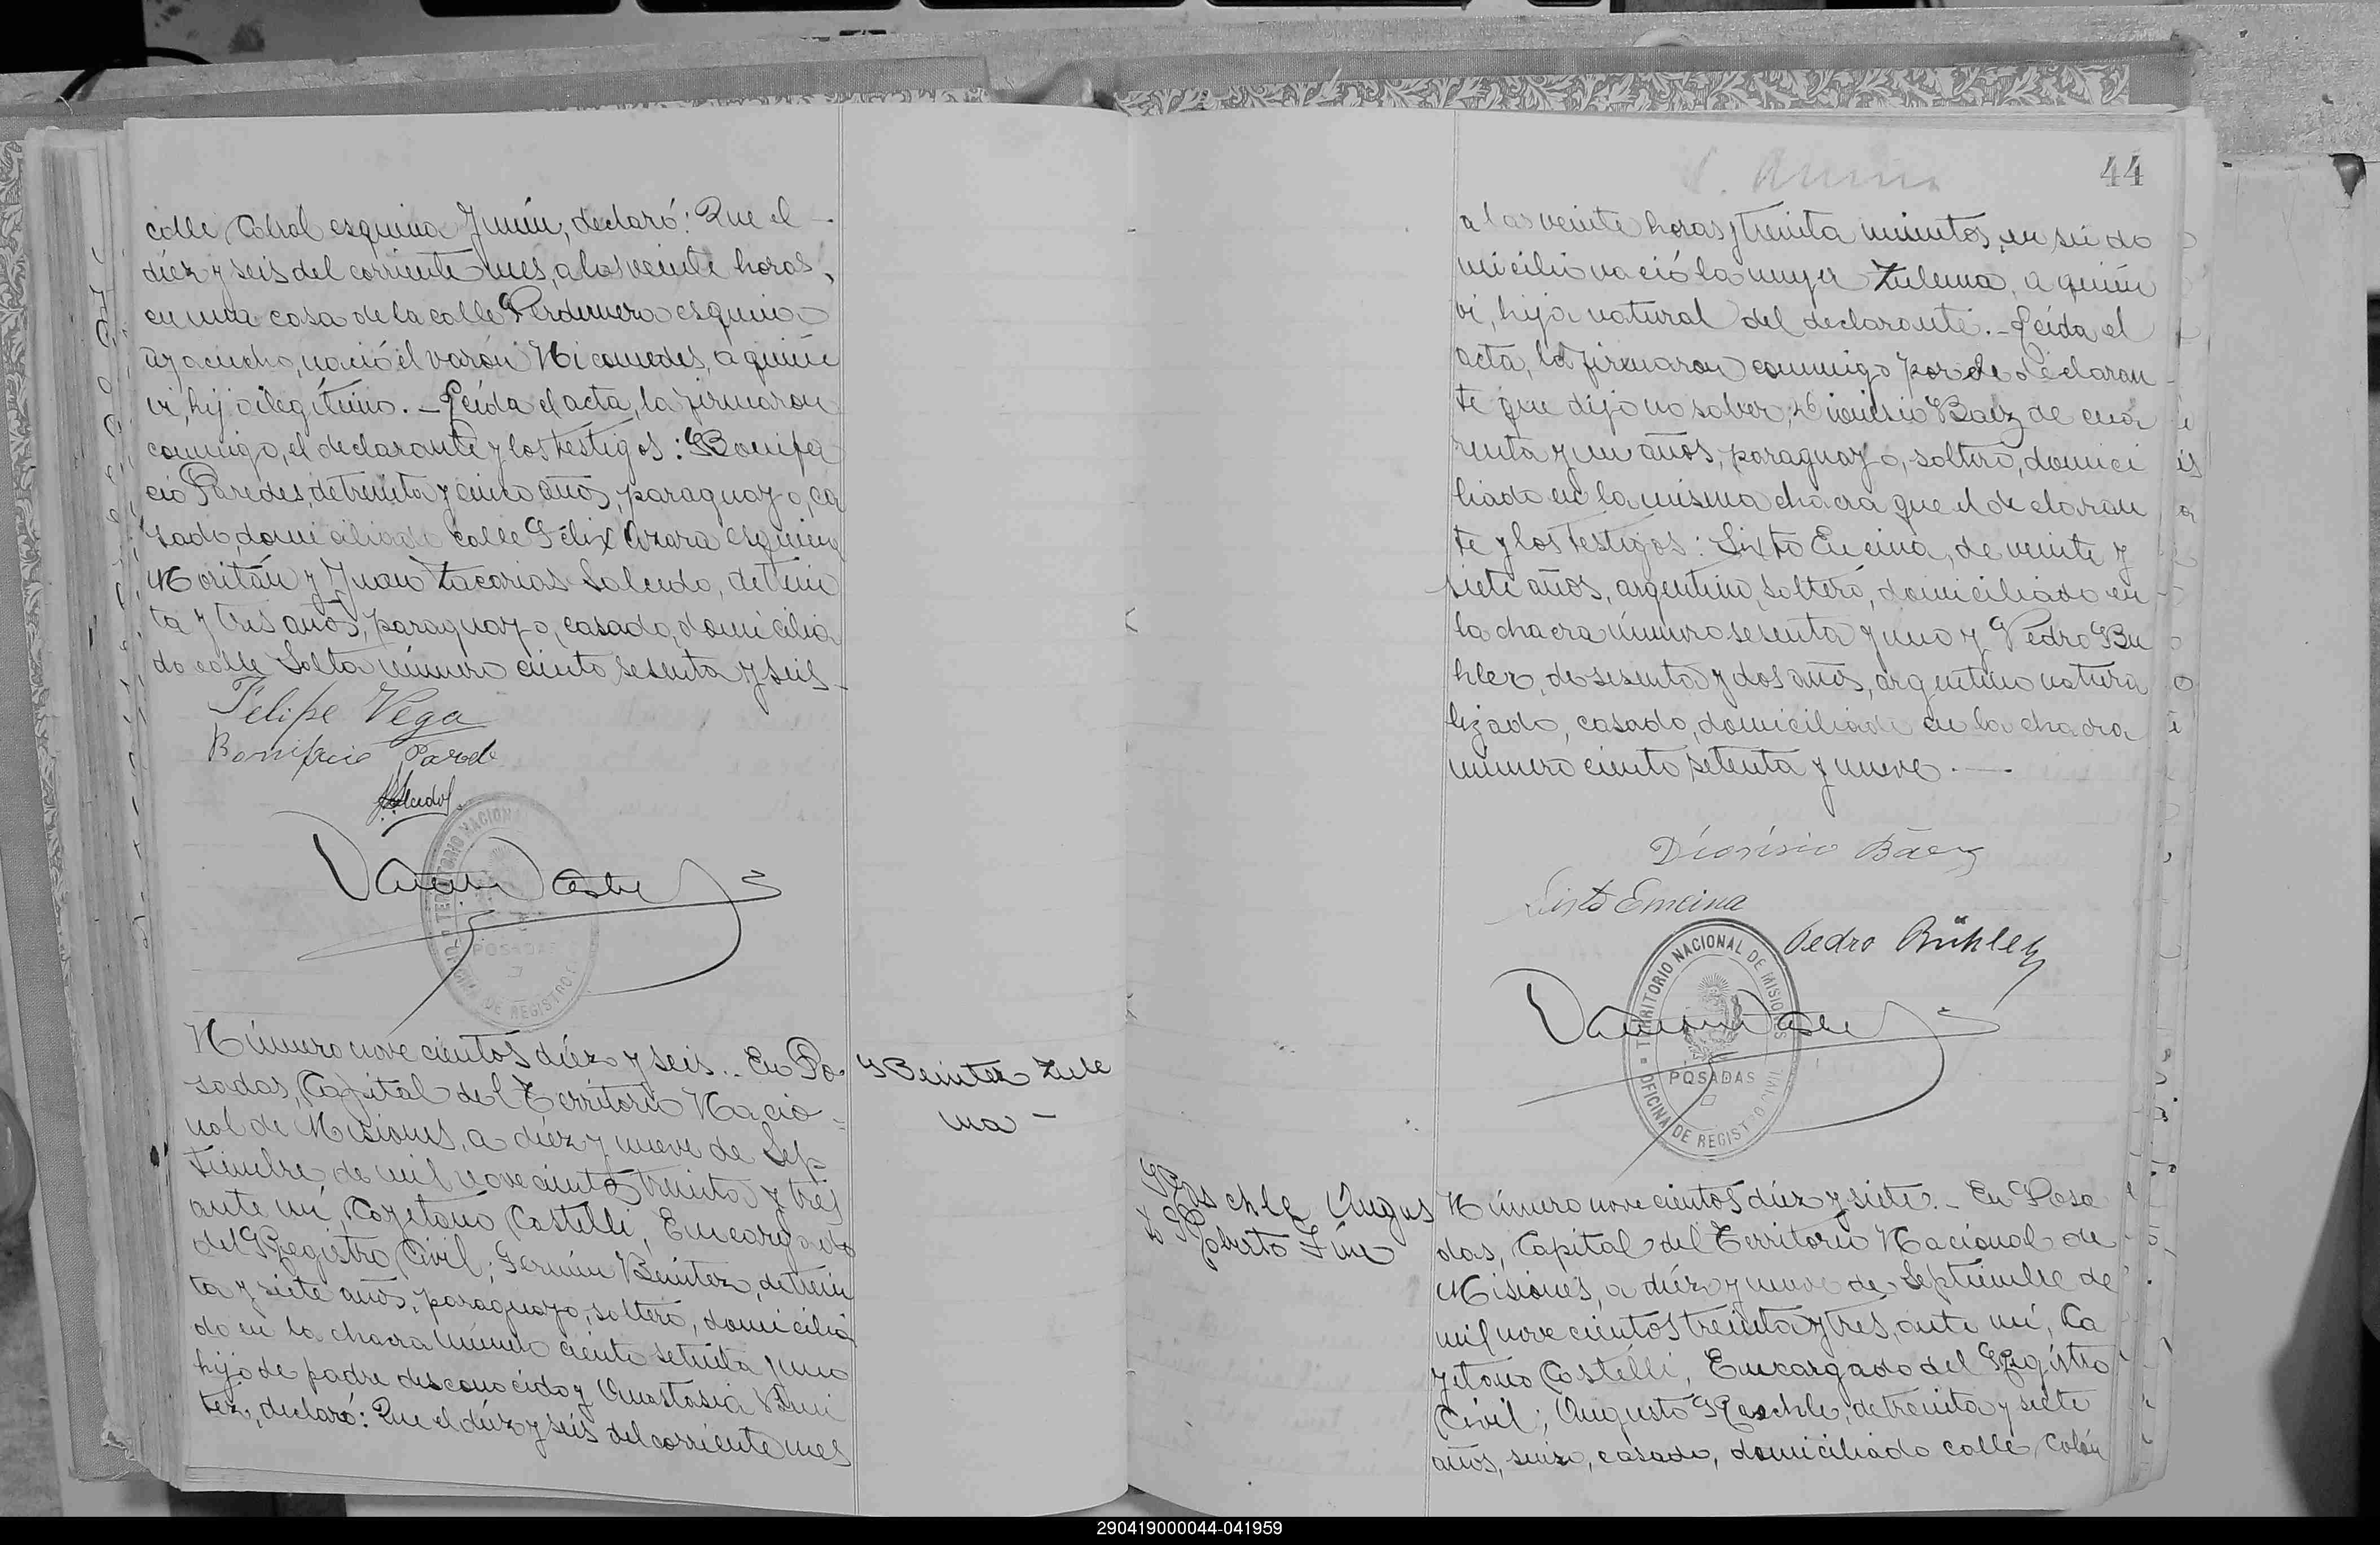 calle Cabral esquina Junín, declaró: Que el
diez y seis del corriente mes, a las veinte horas,
en una casa de la calle Perdernera esquina
ayacucho, nació el varón Nicomedes, a quien
vi, hijo ilegítimo. _ Leída el acta, la firmaron
conmigo, el declarante y los testigos: Bonifa
cio Paredes, de treinta y cinco años, paraguayo, ca
sado, domiciliado calle Félix Azara esquina
Moritán y Juan Zacarias Salcedo, de trein
ta y tres años, paraguayo, casado, domicilia
do calle Salta número ciento sesenta y seis _
Felipe Vega
Bonifacio Parede
TERRITORIO NACIONAL
POSADAS
DE REGISTRO
Número novecientos diez y seis.. En Po
sadas, Capital del Territorio Nacio
nal de Misiones, a diez y nueve de Sep
tiembre de mil novecientos treinta y tres
ante mí, Cayetano Castelli, Encargado
del Registro Civil; Fermín Benitez, de trein
ta y siete años, paraguayo, soltero, domicilia
do en la chacra número ciento setenta y uno
hijo de padre desconocido y Anastasia Beni
tez, declaró: Que el diez y seis del corriente mes
Benitez Zule
ma _
44
a las veinte horas y treinta minutos, en su do
micilio nació la mujer Zulema, a quien
vi, hija natural del declarante. _ Leída el
acta, la firmaron conmigo por el declaran
te que dijo no saber, Dionisio Baez de cua
renta y un años, paraguayo, soltero, domici
liado en la misma chacra que el declaran
te y los testigos: Sixto Encina, de veinte y
siete años, argentino, soltero, domiciliado en
la chacra número sesenta y uno y Pedro Bu
hler, de sesenta y dos años, argentino natura
lizado, casado, domiciliado en la chacra
número ciento setenta y nueve. _
Dionisio Báez
Sixto Encina
Pedro Bühler
TERRITORIO NACIONAL DE MISIONES
POSADAS
OFICINA DE REGISTRO CIVIL
Reschle Augus
to Roberto
Número novecientos diez y siete. _ En Posa
das, Capital del Territorio Nacional de
Misiones, a diez y nueve de Septiembre de
mil novecientos treinta y tres, ante mí, Ca
yetano Castelli, Encargado del Registro
Civil; Augusto Reschle, de treinta y siete
años, suizo, casado, domiciliado calle Colón
290419000044-041959